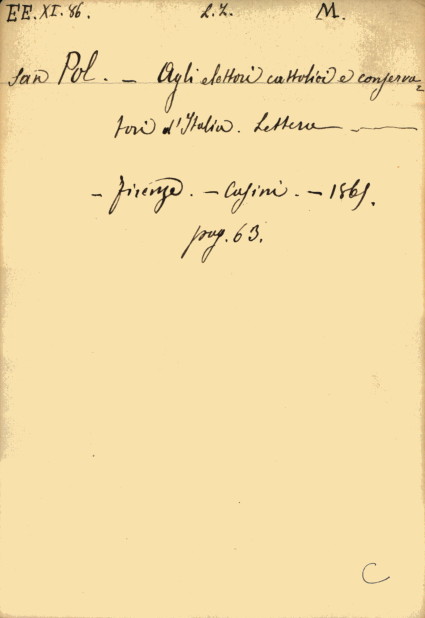 EE. XI. 86. L. Z. M.
San Pol. — Agli elettori cattolici e conserva=
tori d'Italia. Lettera —
— Firenze. — Casini. — 1865.
pag. 63.
C